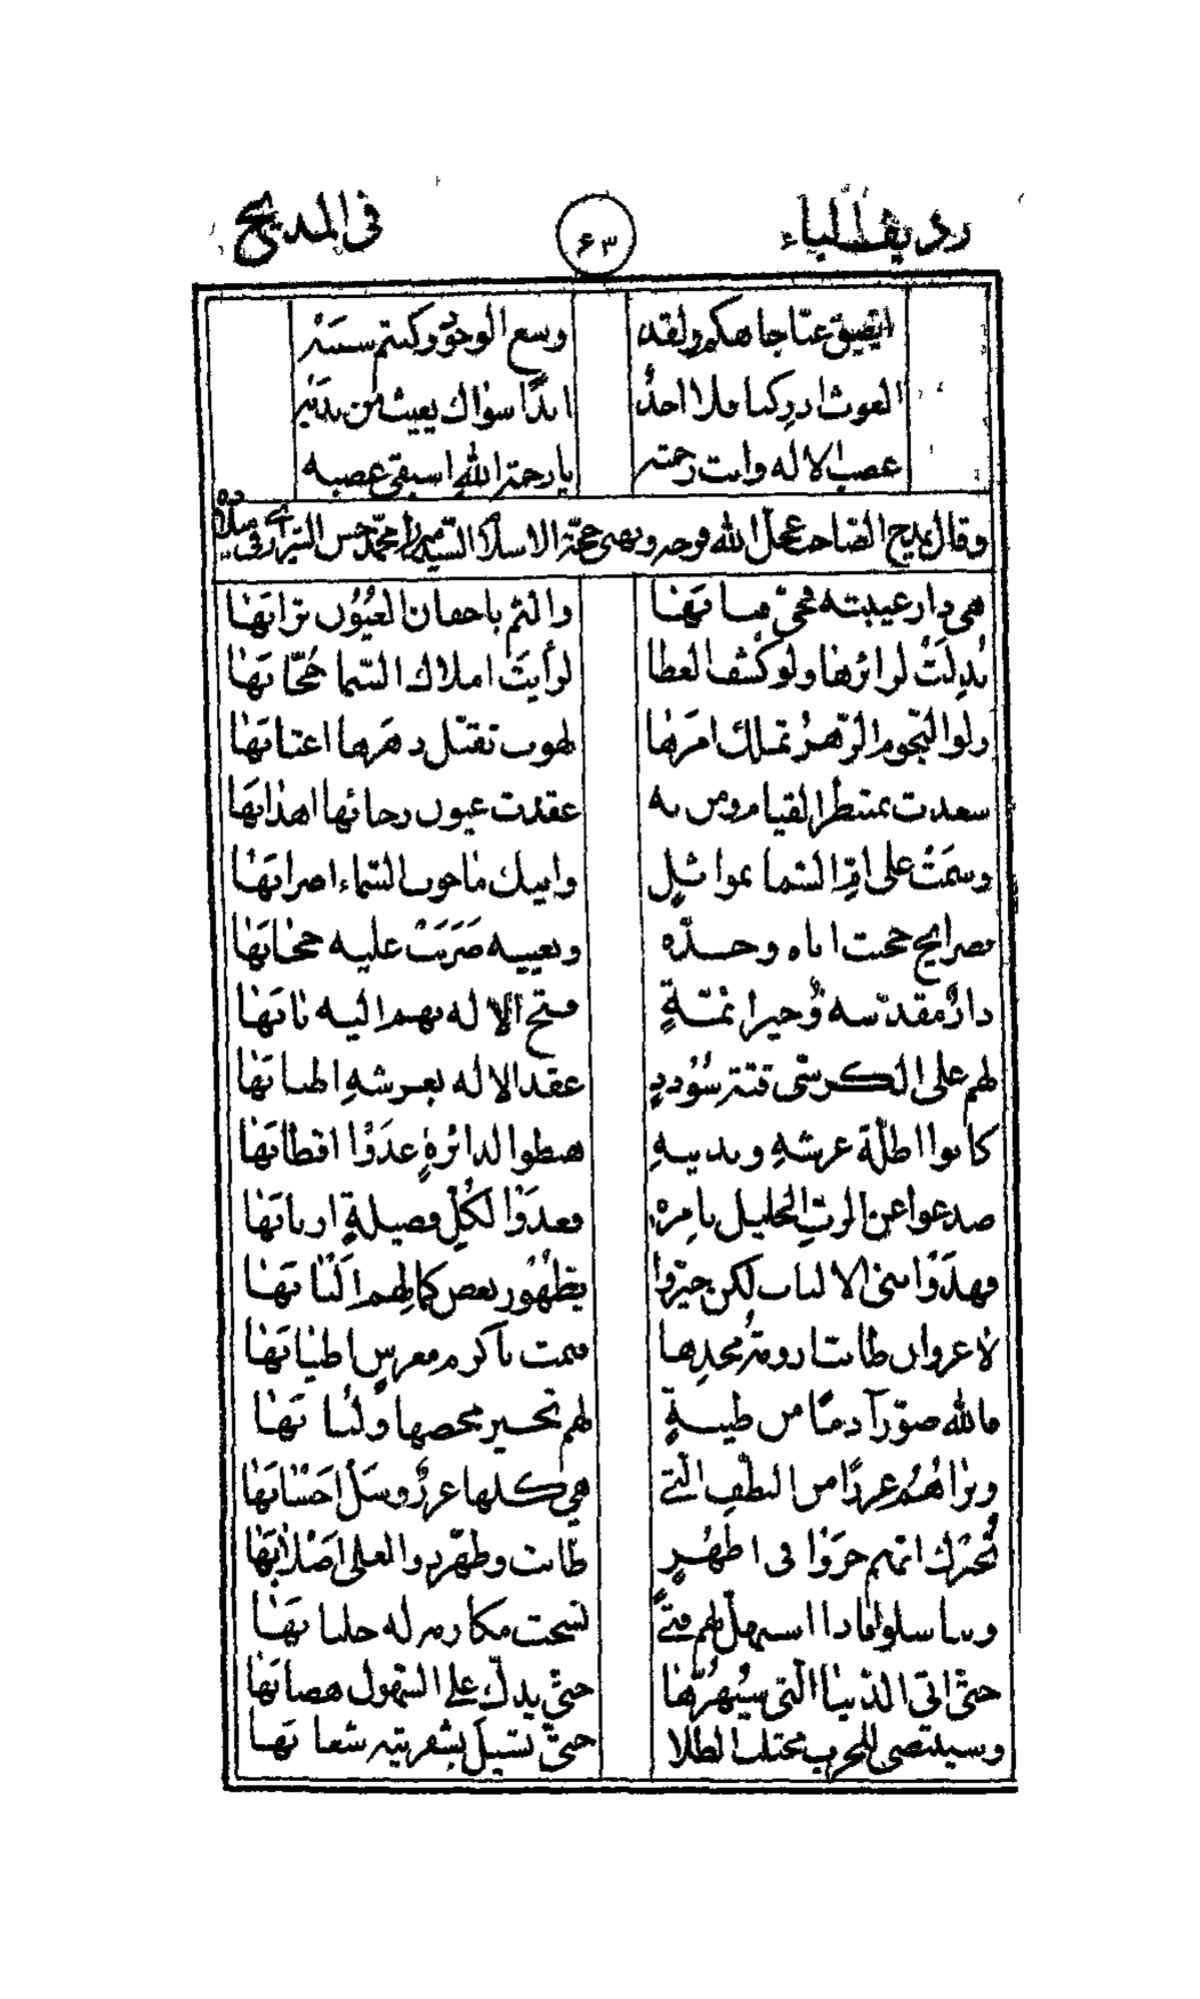 رديف الباء ٦٣ في المديح
ايضيق عنّا جاهكم ولقد وسع الوجود وكنتم سببه
الغوث ادركنا فلا احدٌ ابدًا سواك يغيث من ندبه
غضب الاله وانت رحمته يا رحمة الله اسبقي غضبه
وقال يمدح الصاحب عجل الله فرجه ويهني حجة الاسلام السيد ميرزا محمد حسن الشيرازي في
هي دار غيبته فحيّ قبابها والثم باجفان العُيُون ترابها
بُذِلَتْ لزائرها ولو كشف الغطا لرأيتَ املاك السّما حُجّابها
ولو النّجوم الزّهر تملك امرها لهوت تقبّل دهرها اعتابها
سعدت بمنتظر القيام ومن به عقدت عيون رجائها اهدابها
وسمَتْ على امّ السّما بمواثلٍ وابيك ما حوت السّماء اضرابها
بضرايح حجبت اباه وجدّه وبغيبه ضَرَبَتْ عليه حجابها
دارٌ مقدّسه وخير ائمّةٍ فتح الاله بهم اليه بابها
لهم على الكرسّي قبّة سُؤددٍ عقد الاله بعرشهِ اطنابها
كانوا اظلّة عرشهِ وبدينهِ هبطوا لدائرةٍ غدَوْا اقطابها
صدعوا عن الربّ الجليل بامره فغدَوْا لكُلِّ فضيلةٍ اربابها
فهدَوْا بني الالباب لكن حيّروا بظُهُورِ بعض كمالهم البابها
لا غروان طابت ارومة مجدها فنمت باكرم مغرسٍ اطيابها
فالله صوّر آدمًا من طينةٍ لهم تخير محضها ولُبابها
وبراهُمُ غررًا من النطف التي هي كلها غررٌ وسَلْ احسابها
تُخبرْك انّهم جرَوْا في اظهُرٍ طابت وطهّر ذو العلى اصلابها
وتناسلوا فاذا استهلّ لهم فتىً نسجت مكارمه له جلبابها
حتّى اتى الدّنيا الّتي سيهزّها حتّى يدكّ على السّهول هضابها
وسينتضي للحرب محتلب الطلا حتّى تسيل بشفرتيه شعابها